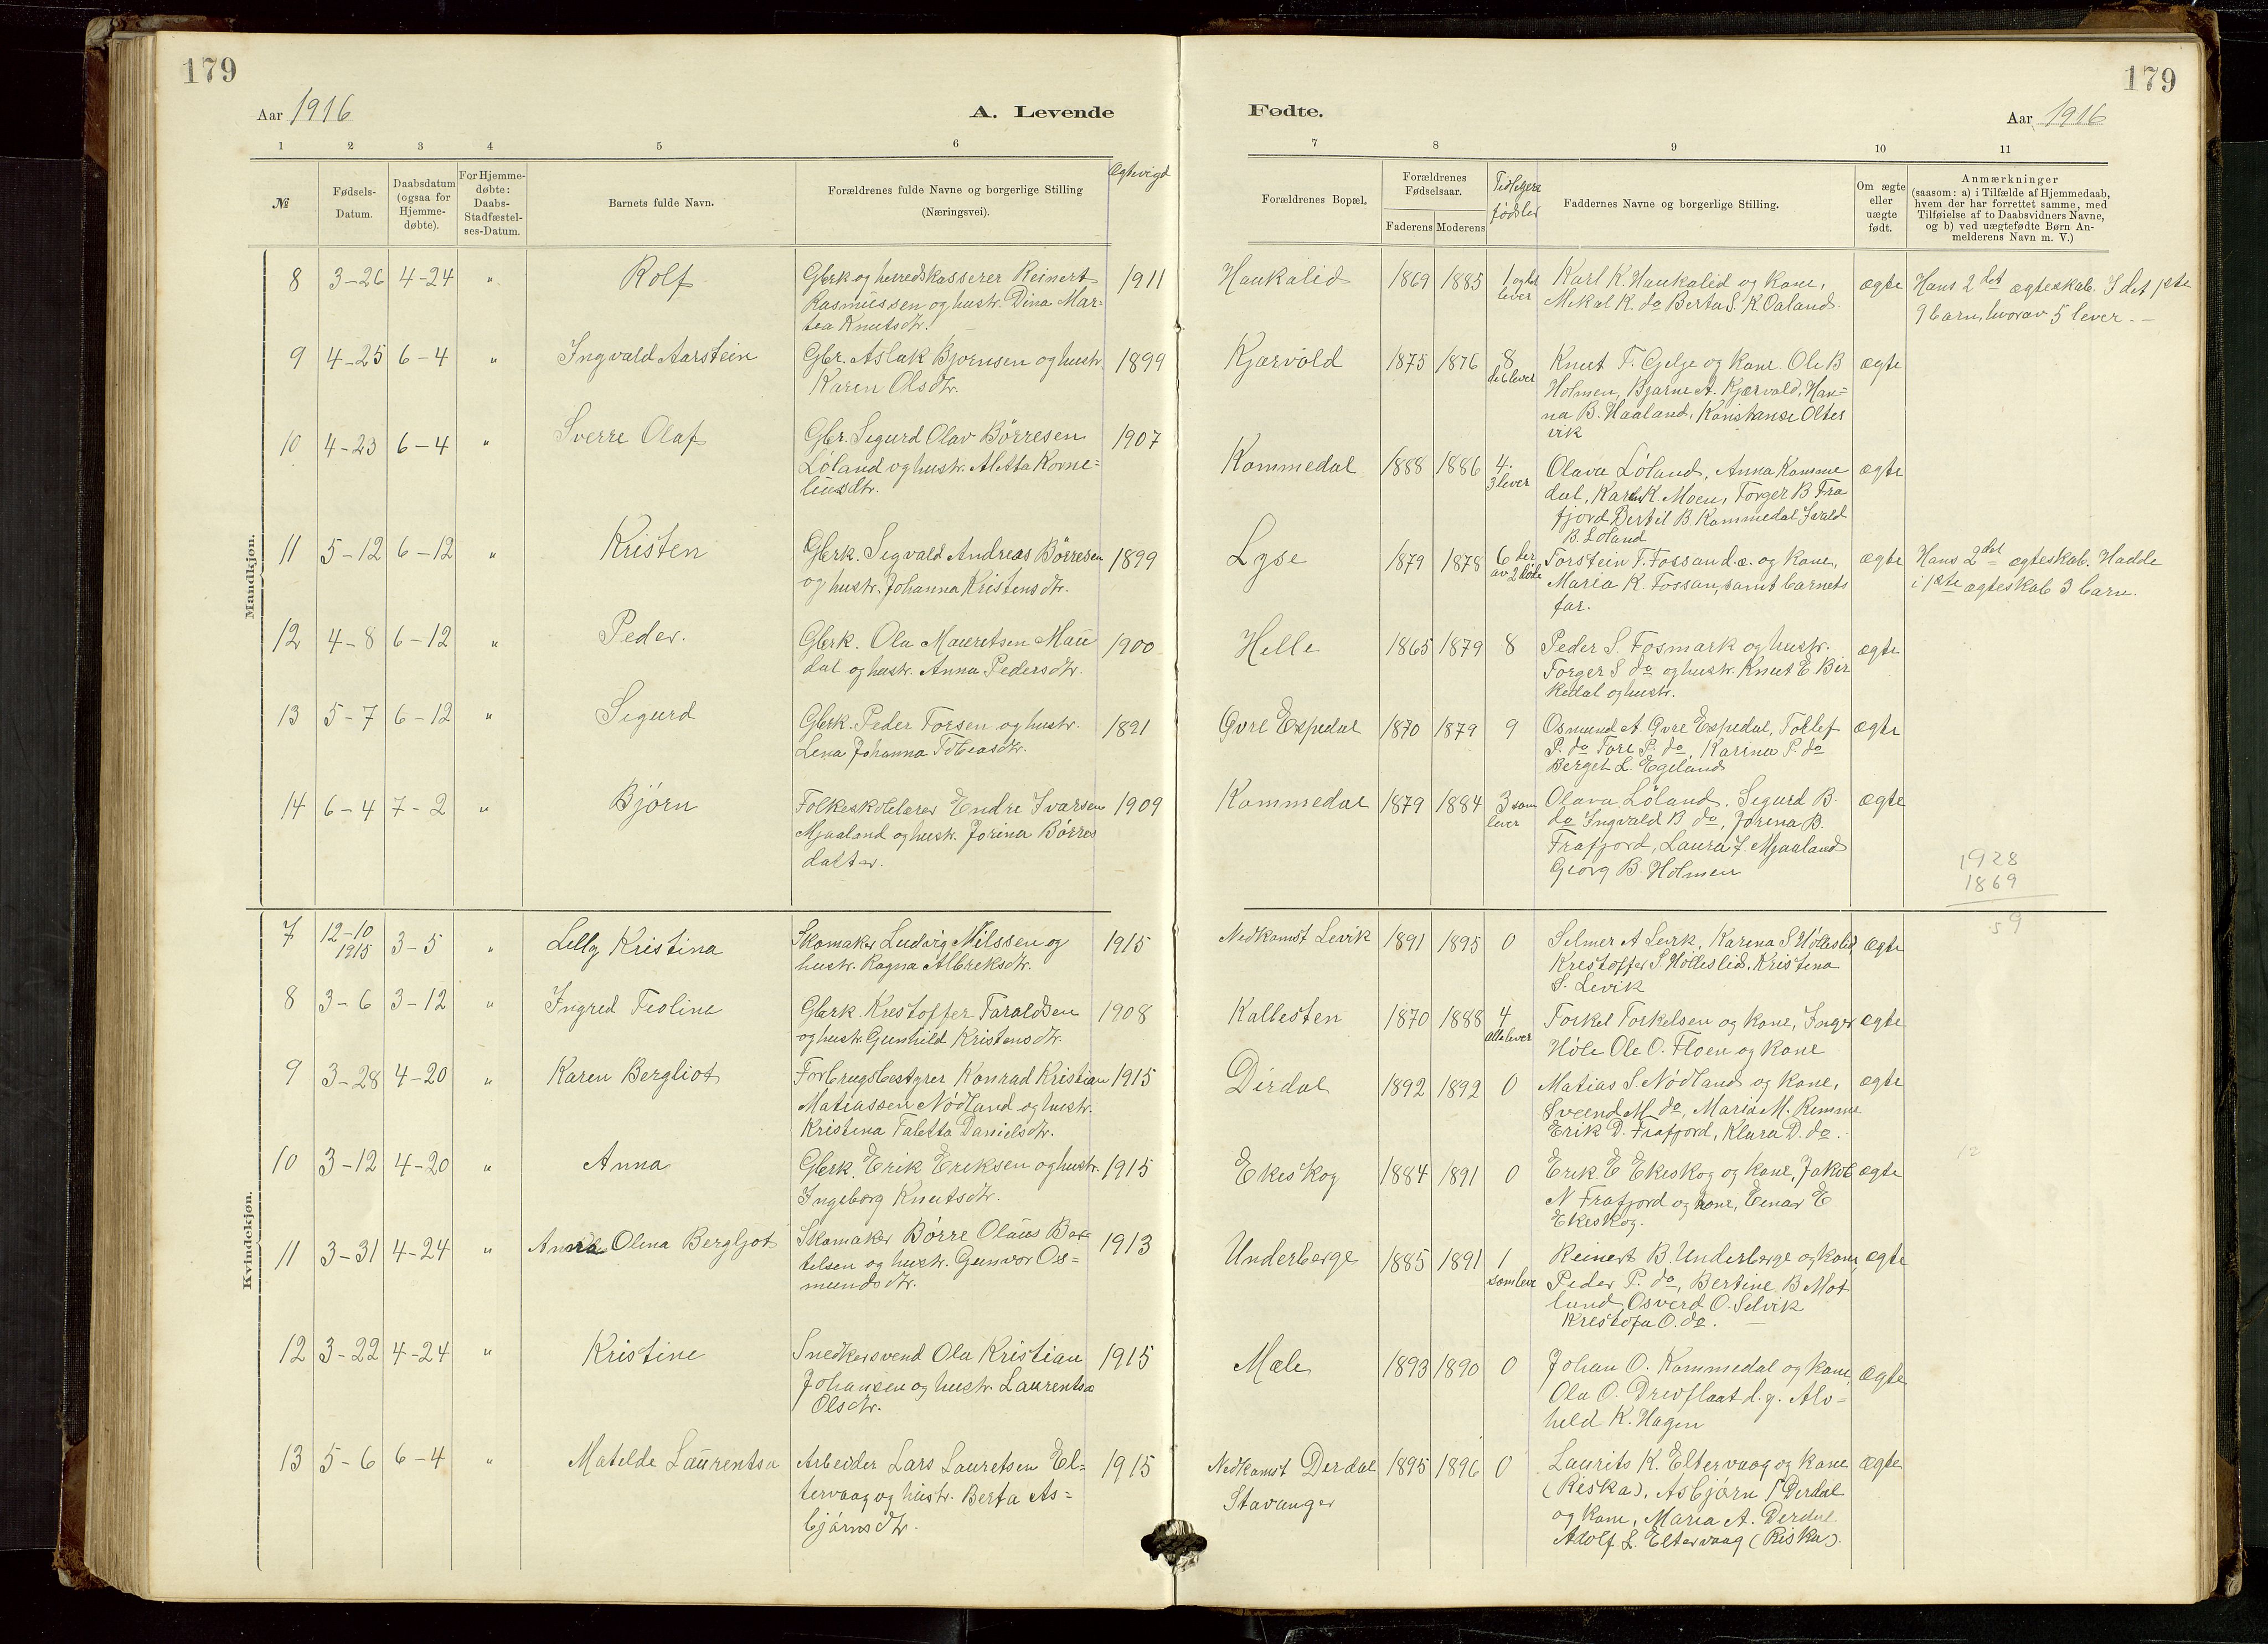 179
179
Aar 1916
A. Levende
Fødte.
Aar 1916
1 2 3 4 5 6
7 8 9 10 11
№
Fødsels-Datum.
Daabsdatum (ogsaa for Hjemme-døbte).
For Hjemme-døbte: Daabs-Stadfæstel-ses-Datum.
Barnets fulde Navn.
Forældrenes fulde Navne og borgerlige Stilling
(Næringsvei).
Ægtevigd
Forældrenes Bopæl.
Forældrenes Fødselsaar.
Faderens Moderens
Tidligere fødsler
Faddernes Navne og borgerlige Stilling.
Om ægte eller uægte født.
Anmærkninger
(saasom: a) i Tilfælde af Hjemmedaab,
hvem der har forrettet samme, med
Tilføielse af to Daabsvidners Navne,
og b) ved uægtefødte Børn An-
melderens Navn m. V.)
Mandkjøn.
8 3-26 4-24 " Rolf
Gbrk og herredskasserer Reinert
Rasmussen og hustr. Dina Mar-
tea Knutsdtr.
1911
Haukalid 1869 1885 1 lever
Karl K. Haukalid og kone,
Mikal K. do Berta S. K. Oaland.
ægte
Hans 2det ægteskab. I det 1ste
9 barn, hvorav 5 lever. -
9 4-25 6-4 " Ingvald Aarstein
Gbr. Aslak Bjørnsen og hustr.
Karen Olsdtr.
1899
Kjærvold 1875 1876 8 6 lever
Knut T. Gjelge og kone Ole B
Holmen, Bjarne A. Kjærvold, Han=
na B. Haaland, Konstanse Olter
vik
ægte
10 4-23 6-4 " Sverre Olaf
Gbr. Sigurd Olav Børresen
Løland og hustr. Aletta Korne=
liusdtr.
1907
Kommedal 1888 1886 4. 3 lever
Olava Løland, Anna Komme
dal, K. Moen, Torger B Fra
fjord Bertil B. Kommedal Ivald
B. Løland
ægte
11 5-12 6-12 " Kristen
Gbrk. Sigvald Andreas Børresen
og hustr. Johanna Kristensdtr.
1899
Lyse 1879 1878 6 der av 2 døde
Torstein T. Fossan d.æ. og kone,
Maria K. Fossan, samt barnets
far.
ægte
Hans 2det ægteskab. Hadde
i 1ste ægteskab 3 barn.
12 4-8 6-12 " Peder.
Gbrk. Ola Mauritsen Mau
dal og hustr. Anna Pedersdtr.
1900
Helle 1865 1879 8
Peder S. Fosmark og hustr.
Torger S do og hustr. Knut E Bir
kedal og hustr.
ægte
13 5-7 6-12 " Sigurd
Gbrk. Peder Torsen og hustr.
Lena Johanna Tobiasdtr.
1891
Øvre Espedal 1870 1879 9
Osmund A. Øvre Espedal, Tollef
P. do Tore P. do, Karina P. do
Berget L. Egeland
ægte
14 6-4 7-2 " Bjørn
Folkeskolelærer Endre Ivarsen
Mjaaland og hustr. Jorina Børres
datter.
1909
Kommedal 1879 1884 3 som lever
Olava Løland. Sigurd B.
do Ingvald B do, Jorina B.
Frafjord, Laura I. Mjaaland
Georg B. Holmen
ægte
1928
1869
59
Kvindekjøn.
7 12-10 1915 3-5 " Lilly Kristina
Skomaker Ludvig Nilssen og
hustr. Ragna Albreksdtr.
1915
Nedkomst Levik 1891 1895 0
Selmer A Levik, Karina S Hølleslid,
Krestoffer S. Hølleslid, Kristina
S. Levik
ægte
8 3-6 3-12 " Ingred Teoline
Gbrk. Krestoffer Taraldsen
og hustr. Gunhild Kristensdtr.
1908
Kallesten 1870 1888 4 alle lever
Torkel Torkelsen og kone, Inger
Høle Ole O. Floen og kone
ægte
9 3-28 4-20 " Karen Bergliot
Forbrugsbestyrer Konrad Kristian
Matiassen Nødland og hustr.
Kristina Taletta Danielsdtr.
1915
Dirdal 1892 1892 0
Matias S. Nødland og kone,
Sveend M do, Maria M. Rimme
Erik D. Frafjord, Klara D. do.
ægte
10 3-12 4-20 " Anna
Gbrk. Erik Eriksen og hustr.
Ingeborg Knutsdtr.
1915
Ekeskog 1884 1891 0
Erik E Ekeskog og kone, Jakob
N Frafjord og kone, Einar E
Ekeskog.
ægte
12
11 3-31 4-24 " Anna Olena Bergljot
Skomaker Børre Olaus Ber-
telsen og hustr. Gunvor Os=
mundsdtr.
1913
Underberge 1885 1891 1 som lever
Reinert B. Underberge og kone,
Peder P. do, Bertine B Mot
land, Osverd O. Selvik
Krestofa O. do.
ægte
12 3-22 4-24 " Kristine
Snedkersvend Ola Kristian
Johansen og hustr. Laurentsa
Olsdtr.
1915
Mæle 1893 1890 0
Johan O. Kommedal og kone,
Ola O. Drevflaat d.y. Alv=
hild K. Hagen
ægte
13 5-6 6-4 " Matilde Laurentsa
Arbeider Lars Lauretsen El=
tervaag og hustr. Berta As=
bjørnsdtr.
1915
Nedkomst Derdal
Stavanger
1895 1896 0
Laurits K. Eltervaag og kone
(Riska), Asbjørn T Derdal
og kone, Maria A. Derdal.
Adolf L. Eltervaag (Riska).
ægte